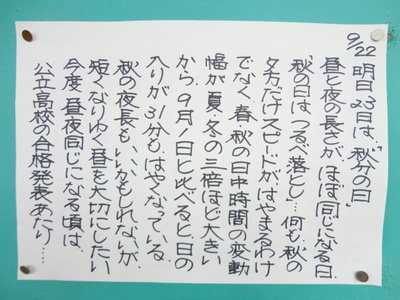 9/22
明日23日は、「秋分の日」
昼と夜の長さがほぼ同じになる日.
「秋の日はつるべ落とし」…何も、秋の
夕方だけスピードがはやまるわけ
でなく、春・秋の日中時間の変動
幅が夏・冬の三倍ほど大きい
から、9月1日と比べると、日の
入りが31分もはやくなっている.
秋の夜長も、いいかもしれないが、
短くなりゆく昼を大切にしたい
今度、昼夜同じになる頃は、
公立高校の合格発表あたり……